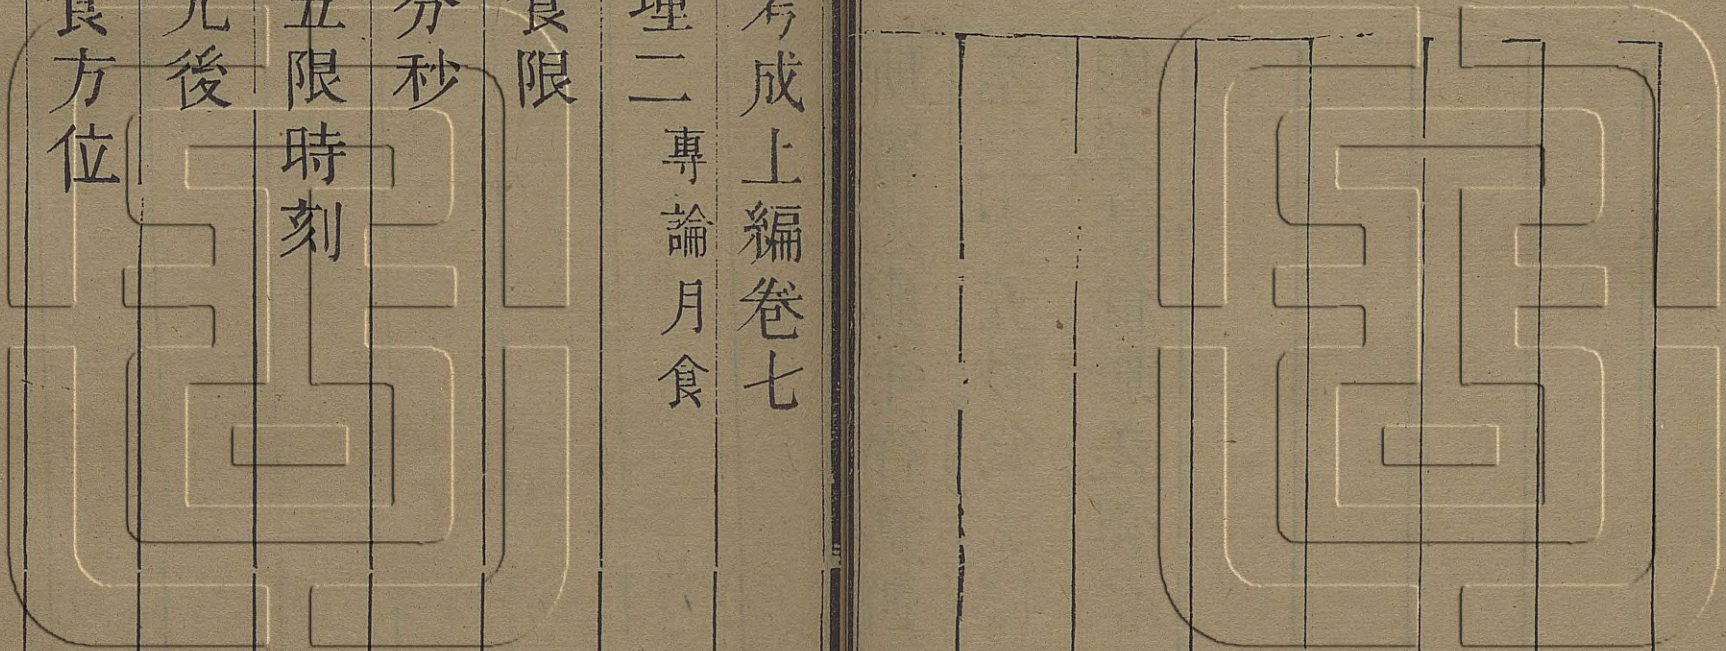 考成上編卷七
理二 專論月食
食限
分秒
五限時刻
光後
食方位